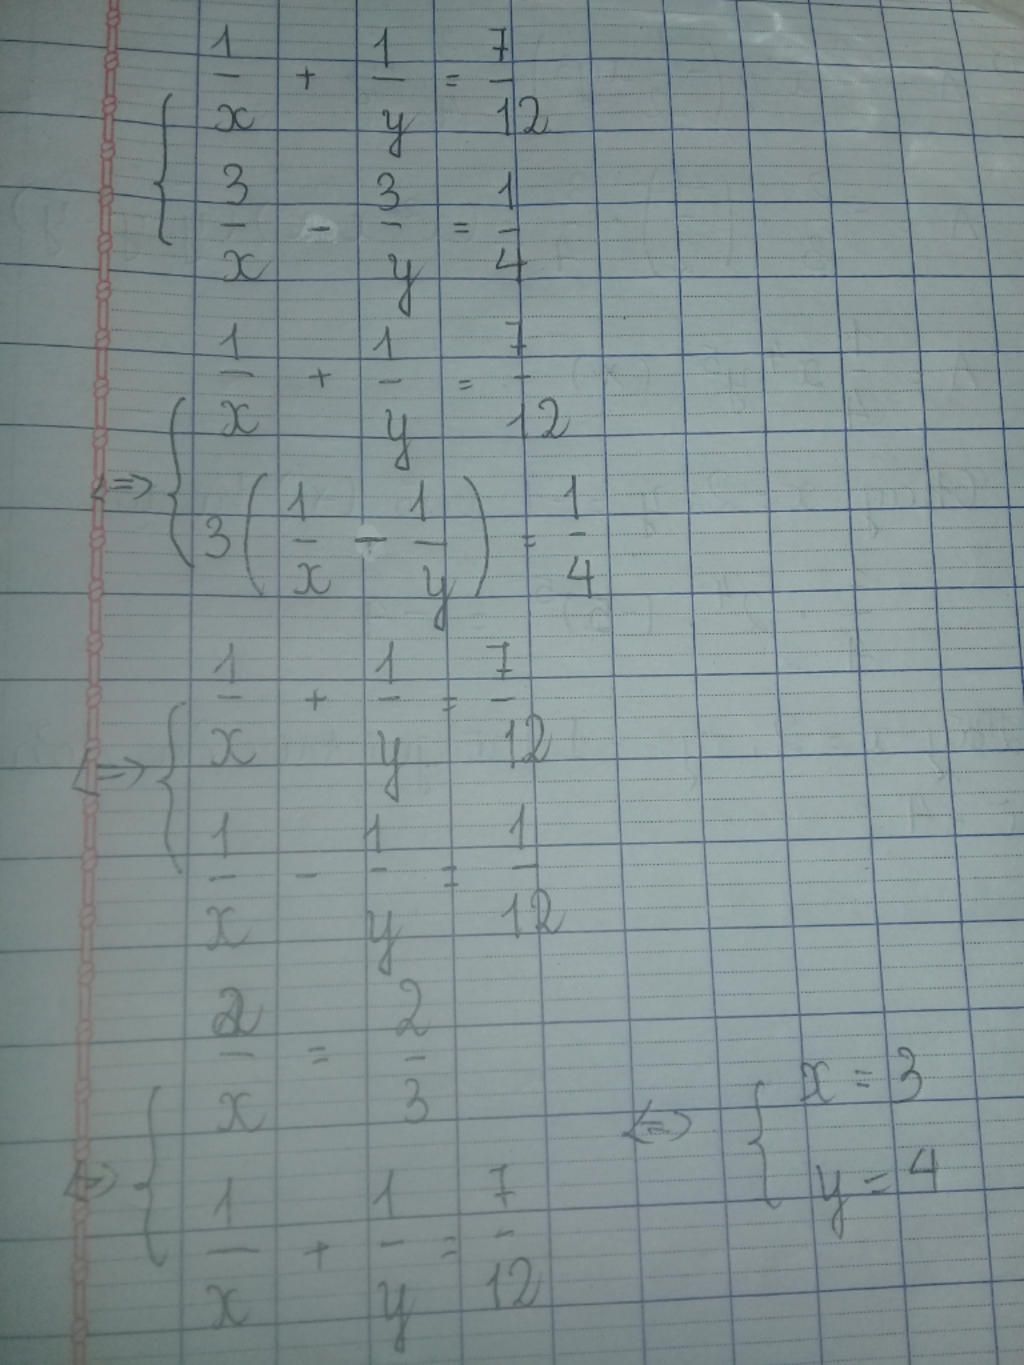 1/x + 1/y = 7/12
3/x - 3/y = 1/4
1/x + 1/y = 7/12
<=> 3(1/x - 1/y) = 1/4
1/x + 1/y = 7/12
<=> 1/x - 1/y = 1/12
2/x = 2/3
<=> 1/x + 1/y = 7/12
<=> x = 3
y = 4